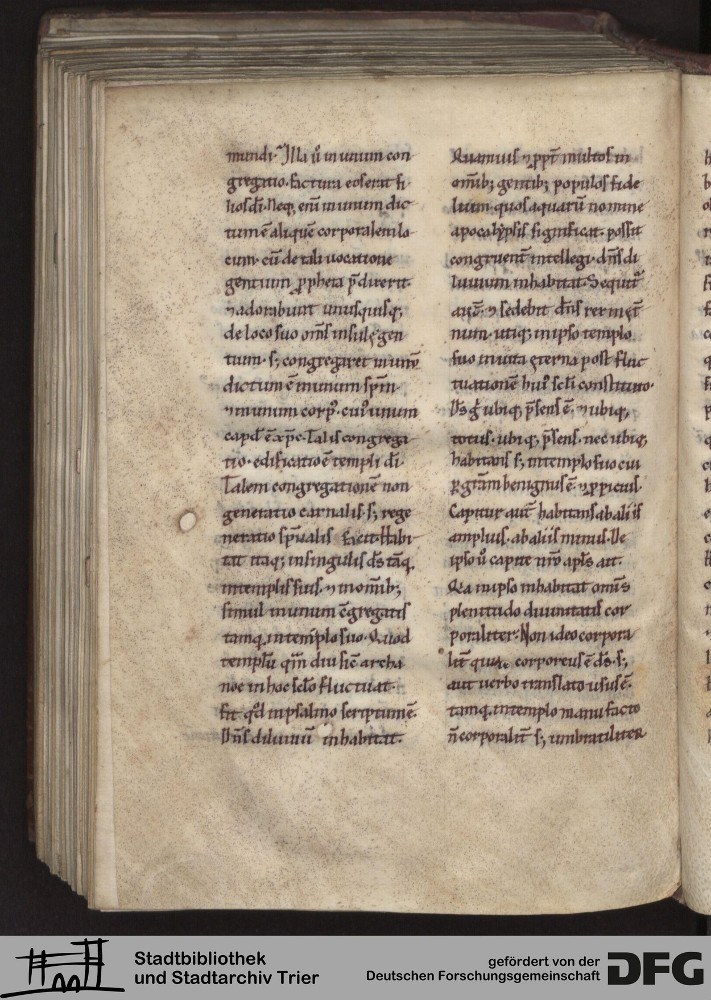 mundi. Illa ů in unum con
gregatio. factura eos erat fi
lios dī. Neq; enī in unum dic
tum ē aliquē corporalem lo
cum. cū de tali uocatione
gentium ꝓpheta p̄dixerit.
⁊ adorabunt unusquisq;
de loco suo om̄s insulę gen
tium. s; congregaret in unū
dictum ē in unum sp̄m.
⁊ in unum corpꝰ. cuiꝰ unum
capđ ē xp̄c. Talis congrega
tio. edificatio ē templi dī.
Talem congregationē non
generatio carnalis. s; rege
neratio sp̄ualis facit. Habi
tat itaq; in singulis dš tāq.
in templis suis. ⁊ in om̄ib;
simul in unum ↄgregatis
tamq. in templo suo. Quod
templū qm̄ diu sic archa
noe in hoc scłō fluctuat.
fit qđ in psalmo scriptum ē.
Dn̄s diluuiū inhabitat.
Quamuis ⁊ ꝓpt̄ multos in
om̄ib; gentib; populos fide
lium. quos aquarū nomine
apocalypsis significat. possit
congruent̄ intellegi. dn̄s di
luuium inhabitat. Sequit᷑
aut̄. ⁊ sedebit dn̄s rex in ęt̄
num. utiq; in ipso templo
suo in uita ęterna post fluc
tuationē huiꝰ scłi constituto.
Dš ǵ ubiq; p̄sens ē. ⁊ ubiq;
totus. ubiq; p̄sens. nec ubiq;
habitans s; in templo suo cui
ꝑ grām benignus ē. ⁊ ꝓpicius.
Capitur aut̄ habitans ab aliis
amplius. ab aliis minus. De
ipso ů capite nr̄o apłs ait.
Qa in ipso inhabitat omīs
plenitudo diuinitatis cor
poraliter: Non ideo corpora
lit̄ quia corporeus ē dš. s;
aut uerbo translato usus ē.
tamq. in templo manu facto
n̄ corporalit̄ s; umbratiliter
Stadtbibliothek
und Stadtarchiv Trier
gefördert von der
Deutschen Forschungsgemeinschaft
DFG